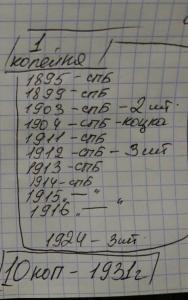 1
копейка
1895 - СПБ
1899 - СПБ
1903 - СПБ - 2 шт.
1904 - СПБ - коцка
1911 - СПБ
1912 - СПБ - 3 шт
1913 - СПБ
1914 - СПБ
1915 „ — „
1916 „ — „
1924 - 3 шт.
10 коп - 1931г